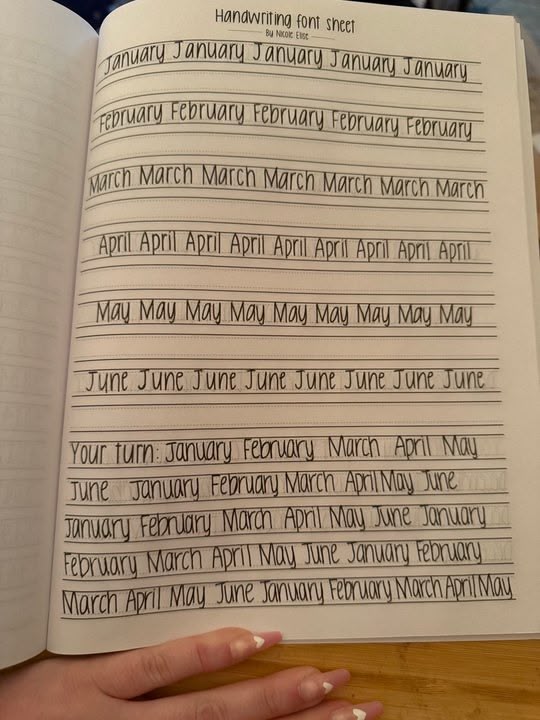 Handwriting font sheet
By Nicole Elise
January January January January January
February February February February February
March March March March March March March
April April April April April April April April April
May May May May May May May May May
June June June June June June June June
Your turn: January February March April May
June January February March April May June
January February March April May June January
February March April May June January February
March April May June January February March April May